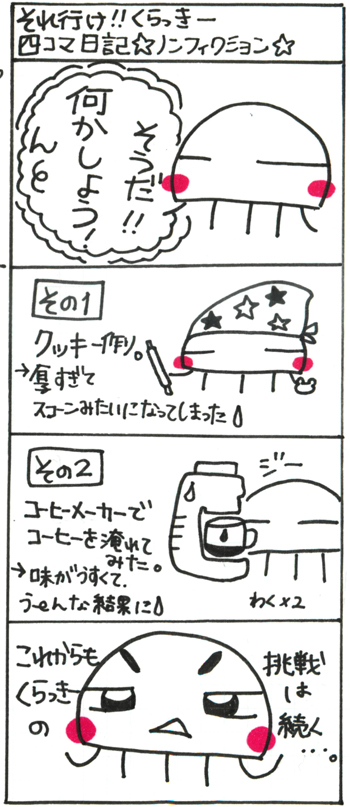 それ行け!!くらっきー
四コマ日記☆ノンフィクション☆
そうだ!!
何かしよう!
んと
その1
クッキー作り。
→厚すぎて
スコーンみたいになってしまった
その2
コーヒーメーカーで
コーヒーを淹れて
みた。
→味がうすくて、
うーんな結果に
ジー
わく×2
これからも
くらっきー
の
挑戦
は
続く…。